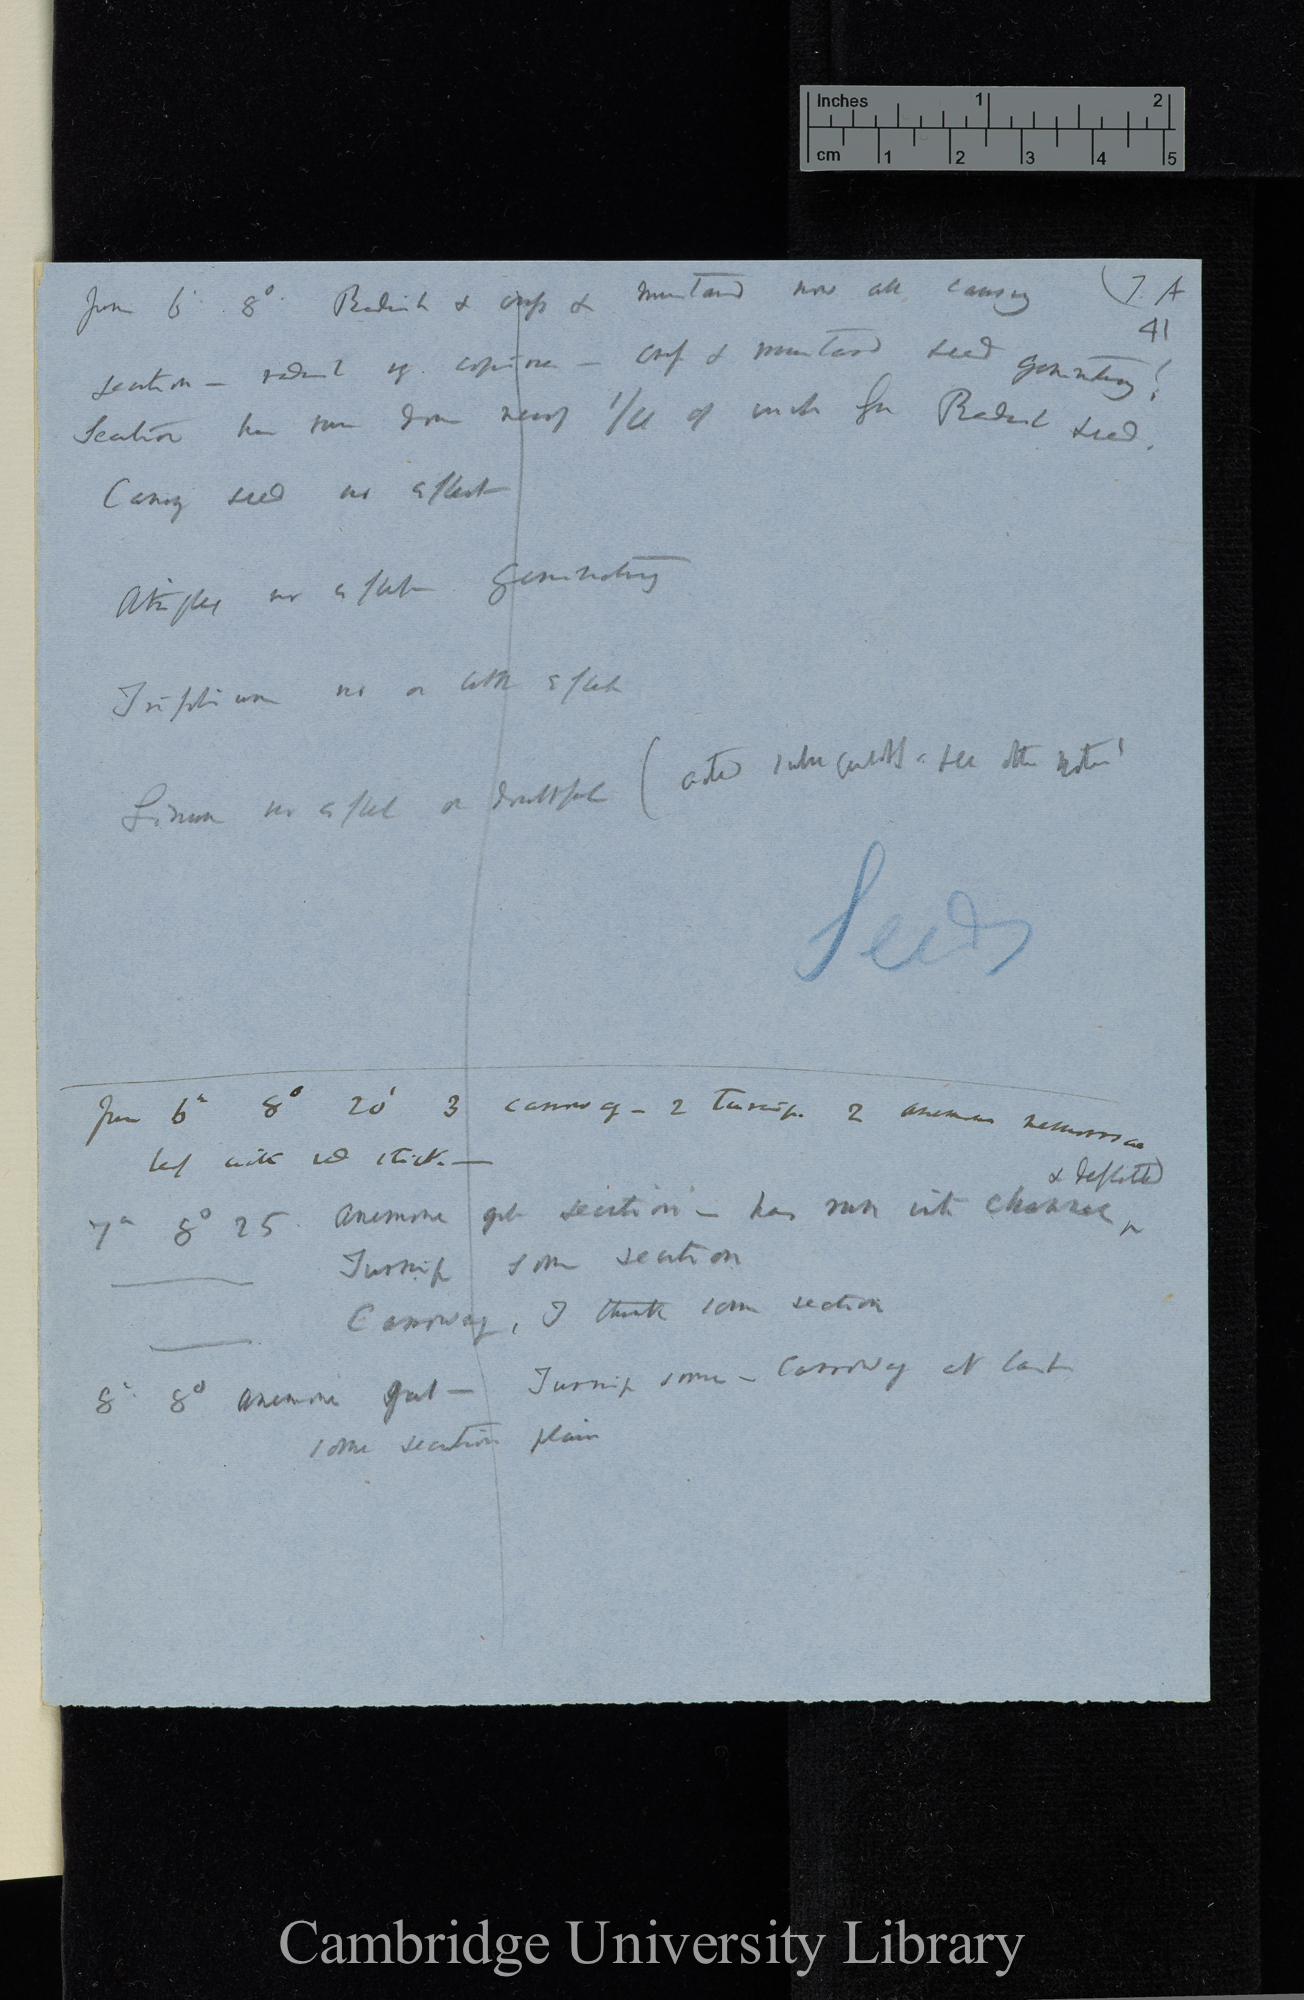 Inches 1 2
cm 1 2 3 4 5
(7. A
41
June 6 8° Radish & cress & mustard now all causing
secretion — radish v. copious — cress & mustard seed germinating!
Secretion has run down nearly of inch for Radish seed.
Canary seed no effect
Atriplex no effect germinating
Trifolium no or little effect
Linum no effect or doubtful (acted subsequently — see other notes
Seeds
June 6th 8° 20' 3 carroway — 2 Turnip. 2 anemone nemorosa
leaf with red stick. —
& deflected
7th 8° 25 Anemone great secretion — has run into channel
Turnip some secretion
Carroway, I think some secretion
8th 8° Anemone great — Turnip some — Carroway at last
some secretion plain
Cambridge University Library